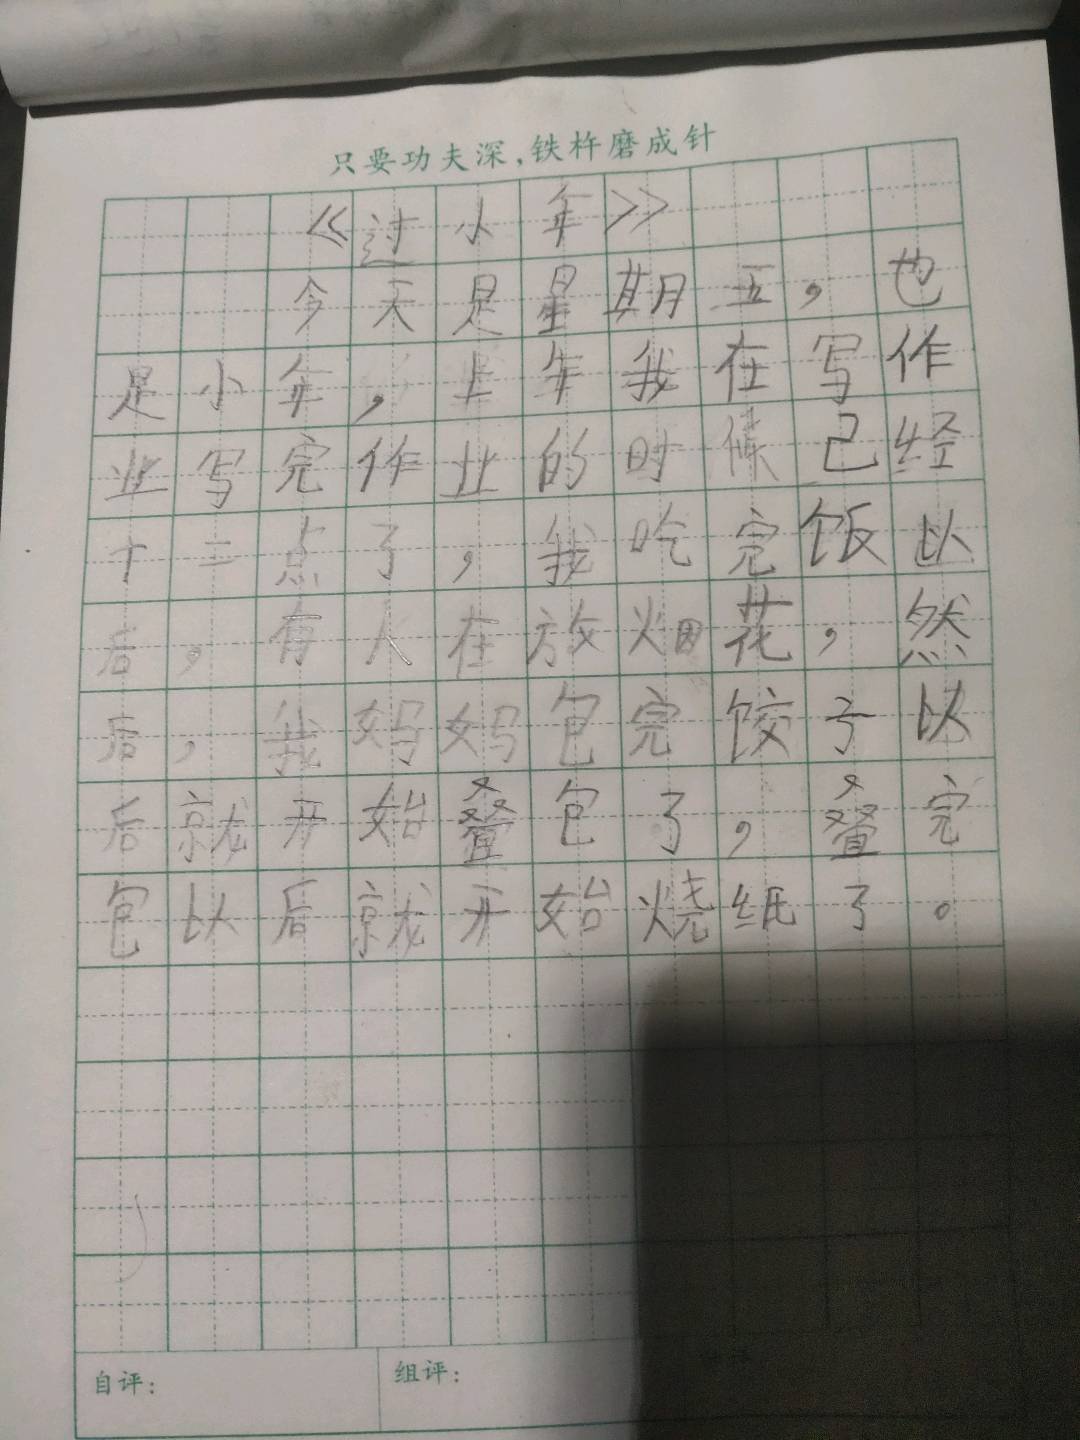 只要功夫深,铁杵磨成针
《过小年》
今天是星期五，也
是小年，上年我在写作
业写完作业的时候已经
十二点了，我吃完饭以
后，有人在放烟花，然
后，我妈妈包完饺子以
后就开始叠包了，叠完
包以后就开始烧纸了。
自评：
组评：